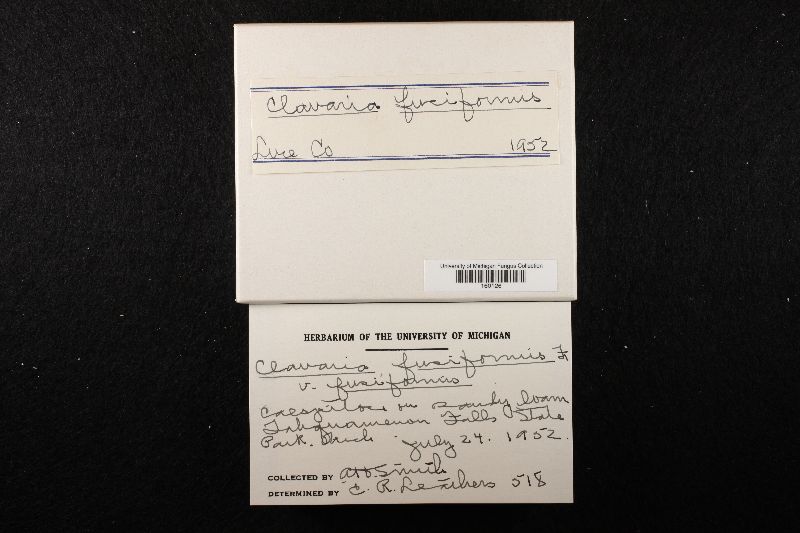 Clavaria fusiformis
Luce Co 1952
University of Michigan Fungus Collection
160126
HERBARIUM OF THE UNIVERSITY OF MICHIGAN
Clavaria fusiformis Fr
v. fusiformis
Caespitose on sandy loam
Tahquamenon Falls State
Park. Mich July 24. 1952.
COLLECTED BY A.H. Smith
DETERMINED BY E. R. Leathers 518